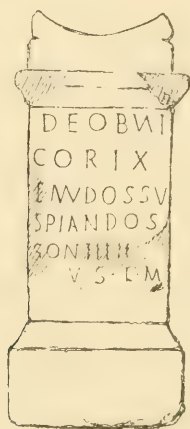 DEOBVII
CORIX
ENVDOSSV
SPIANDOS
SONIIII
V S L M